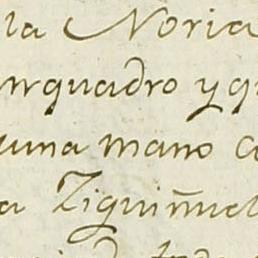 la Noria
nrquadro y q
una mano c
a Ziguiñuel